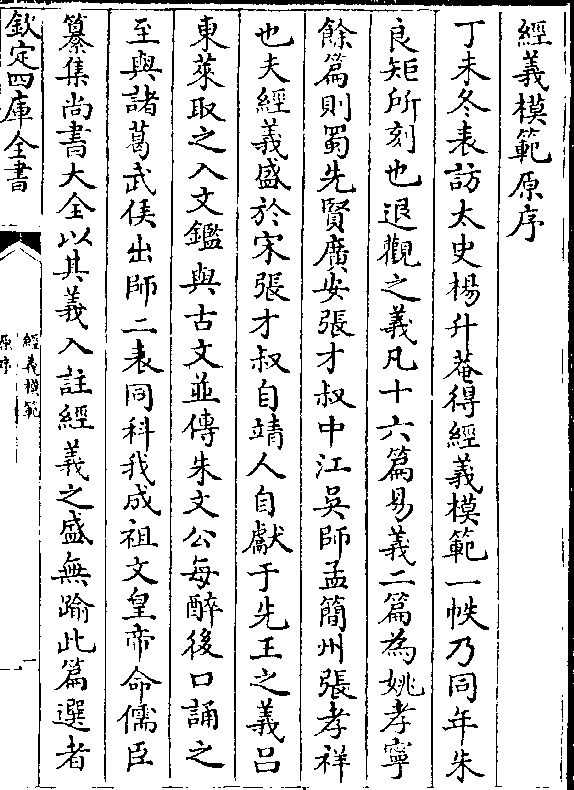 經義模範原序
丁未冬表訪太史楊升菴得經義模範一帙乃同年朱
良矩所刻也退觀之義凡十六篇易義二篇為姚孝寧
餘篇則蜀先賢廣安張才叔中江吳師孟簡州張孝祥
也夫經義盛於宋張才叔自靖人自獻于先王之義吕
東萊取之入文鑑與古文並傳朱文公每醉後口誦之
至與諸葛武侯出師二表同科我成祖文皇帝命儒臣
纂集尚書大全以其義入註經義之盛無踰此篇選者
欽定四庫全書
經義模範
原序
一